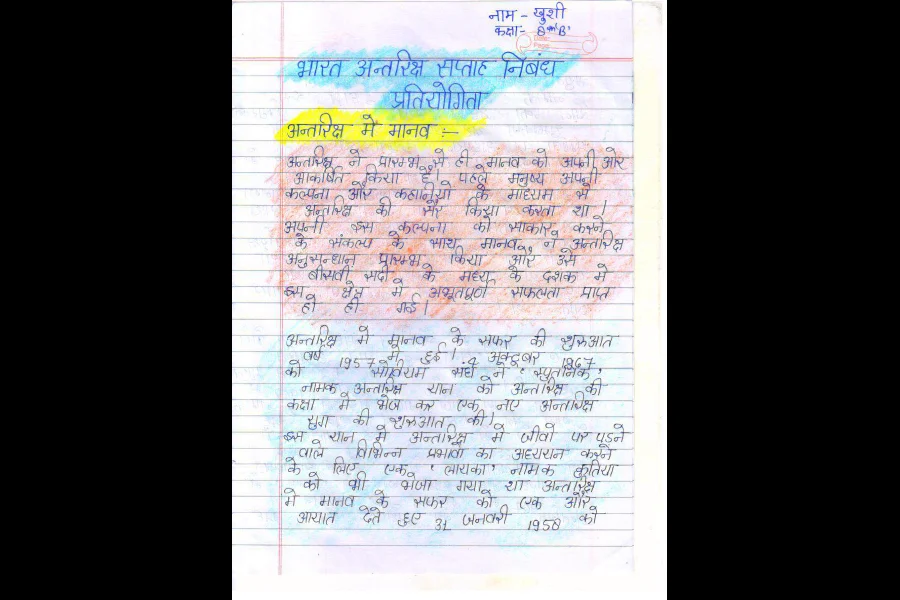 नाम - खुशी
कक्षा- 8th 'B'
भारत अन्तरिक्ष सप्ताह निबंध
प्रतियोगिता
अन्तरिक्ष में मानव :-
अन्तरिक्ष ने प्रारम्भ से ही मानव को अपनी ओर
आकर्षित किया है। पहले मनुष्य अपनी
कल्पना और कहानियो के माध्यम से
अन्तरिक्ष की सैर किया करता था।
अपनी इस कल्पना को साकार करने
के संकल्प के साथ मानव ने अन्तरिक्ष
अनुसन्धान प्रारम्भ किया और उसे
बीसवीं सदी के मध्य के दशक में
इस क्षेत्र में अभूतपूर्ण सफलता प्राप्त
हो ही गई।
अन्तरिक्ष में मानव के सफर की शुरुआत
वर्ष 1957 में हुई। 4 अक्टूबर 1967
को सोवियम संघ ने 'स्पुतनिक'
नामक अन्तरिक्ष यान को अन्तरिक्ष की
कक्षा में भेज कर एक नए अन्तरिक्ष
युग की शुरुआत की।
इस यान में अन्तरिक्ष में जीवो पर पड़ने
वाले विभिन्न प्रभावो का अध्ययन करने
के लिए एक 'लायका' नामक कुतिया
को भी भेजा गया था अन्तरिक्ष
में मानव के सफर को एक और
आयात देते हुए 31 जनवरी 1958 को